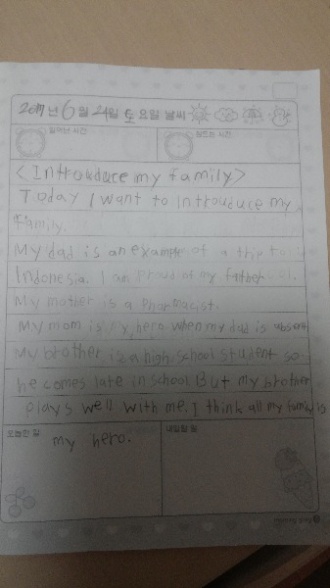 2017년 6월 24일 토요일 날씨
일어난 시간 잠드는 시간
<Introuduce my family>
Today I want to introuduce my
family.
My dad is an example of a trip to
Indonesia. I am proud of my father
My mother is a pharmacist.
My mom is my hero when my dad is absent
My brother is a high school student so
he comes late in school But my brother
plays well with me. I think all my family is
오늘한 일 my hero. 내일할 일